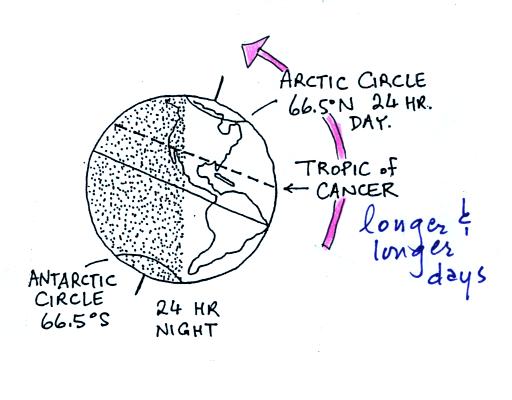 ARCTIC CIRCLE
66.5°N 24 HR.
DAY.
TROPIC of
CANCER
longer &
longer
days
ANTARCTIC
CIRCLE
66.5°S
24 HR
NIGHT